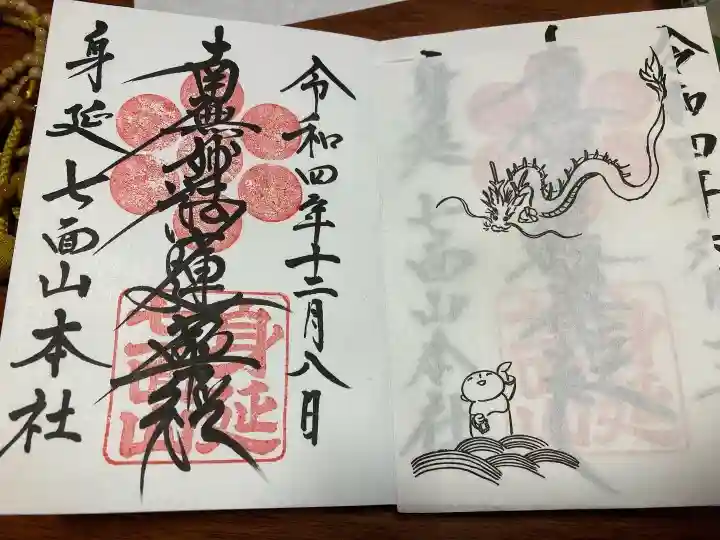 令和四年
七面山本社
令和四年十二月八日
南無妙法蓮華経
身延
七面山
身延七面山本社